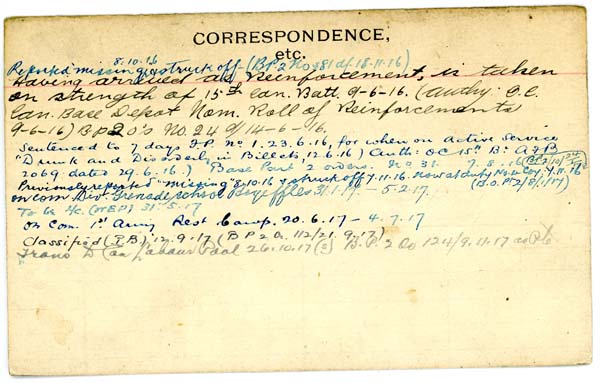 CORRESPONDENCE,
etc.
8.10.16
Reported missing & struck off (BP2 No 81 df 18.11.16)
Having arrived as Reinforcement, is taken
on strength of 15th Can. Batt. 9-6-16. (Authy: O.C.
Can. Base Depot Nom. Roll of Reinforcements
9-6-16) BP2 O's No. 24 of 14-6-16.
Sentenced to 7 days F.P. No 1. 23.6.16, for when on Active Service
"Drunk and Disorderly in Billets, 12.6.16) Auth: OC 15th Bn AFB
2069 dated 29.6.16.) Base Part 2 orders. No 31. 7.8.16
Previously reported "missing" 8.10.16 & struck off 7.11.16. Now at duty No 4 Coy, 7.11.16
on com Div. Grenade school 31.1.17 – 5.2.17. (B.O. PT 2/8/1/17)
To be 31.5.17
on Com. 1st Army Rest Camp. 20.6.17 – 4.7.17
Classified (PB) 12.9.17 (BP2 O. 112/21.9.17)
Trans D Can Labour Pool 26.10.17 B.P.2 Do 124/9.11.17 as Pte